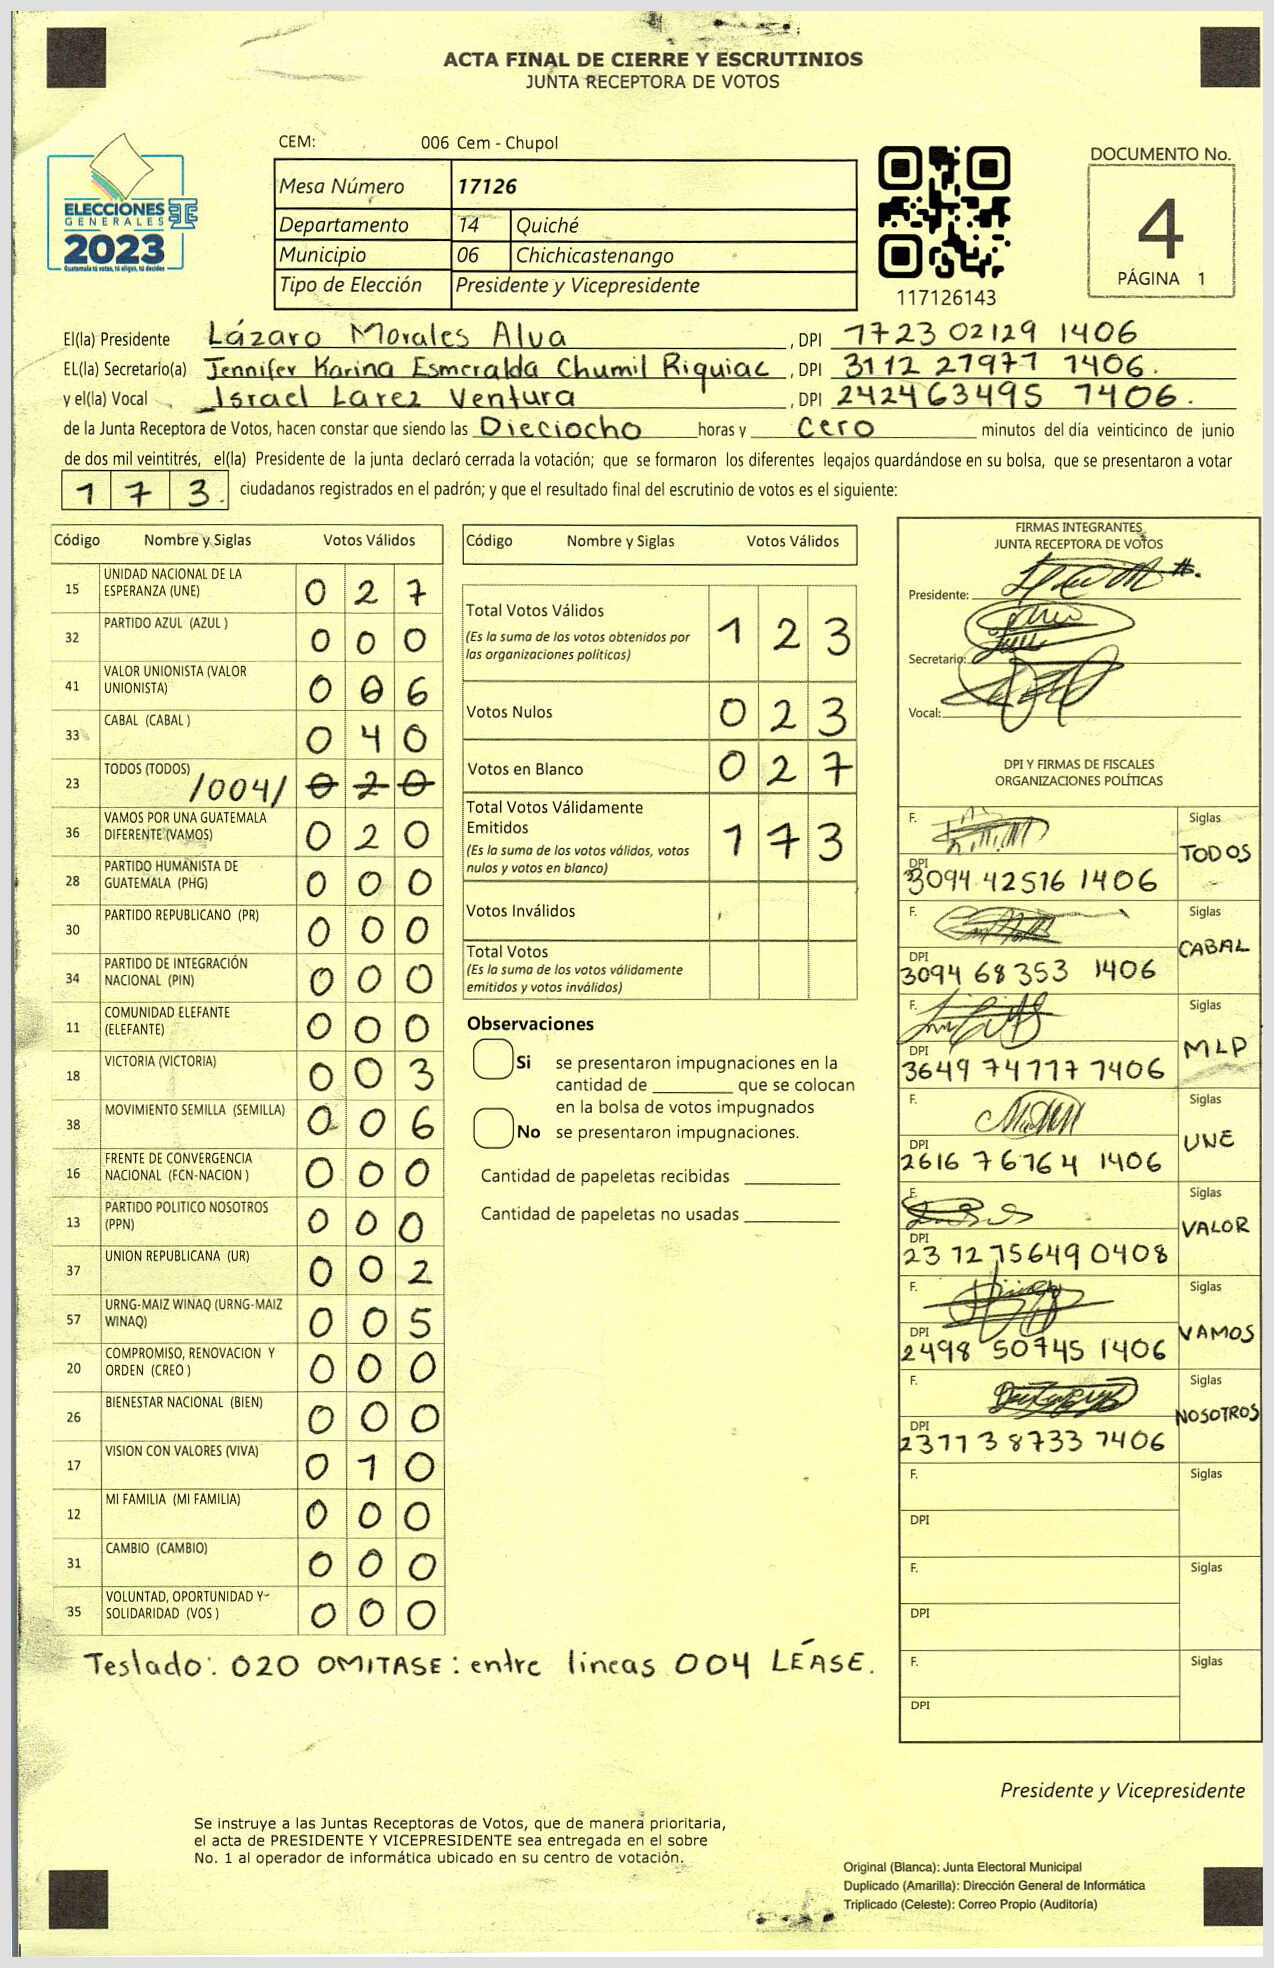 ACTA FINAL DE CIERRE Y ESCRUTINIOS
JUNTA RECEPTORA DE VOTOS
CEM: 006 Cem - Chupol
ELECCIONES
GENERALES
2023
Guatemala tú votas, tú eliges, tú decides
Mesa Número 17126
Departamento 14 Quiché
Municipio 06 Chichicastenango
Tipo de Elección Presidente y Vicepresidente
117126143
DOCUMENTO No.
4
PÁGINA 1
El(la) Presidente Lázaro Morales Alva, DPI 1723 02129 1406
EL(la) Secretario(a) Jennifer Karina Esmeralda Chumil Riquiac, DPI 3112 27977 1406.
y el(la) Vocal Israel Larez Ventura, DPI 242463495 1406.
de la Junta Receptora de Votos, hacen constar que siendo las Dieciocho horas y cero minutos del día veinticinco de junio
de dos mil veintitrés, el(la) Presidente de la junta declaró cerrada la votación; que se formaron los diferentes legajos guardándose en su bolsa, que se presentaron a votar
173 ciudadanos registrados en el padrón; y que el resultado final del escrutinio de votos es el siguiente:
Código Nombre y Siglas Votos Válidos
15 UNIDAD NACIONAL DE LA ESPERANZA (UNE) 0 2 7
32 PARTIDO AZUL (AZUL ) 0 0 0
41 VALOR UNIONISTA (VALOR UNIONISTA) 0 0 6
33 CABAL (CABAL ) 0 4 0
23 TODOS (TODOS) /004/ 0 2 0
36 VAMOS POR UNA GUATEMALA DIFERENTE (VAMOS) 0 2 0
28 PARTIDO HUMANISTA DE GUATEMALA (PHG) 0 0 0
30 PARTIDO REPUBLICANO (PR) 0 0 0
34 PARTIDO DE INTEGRACIÓN NACIONAL (PIN) 0 0 0
11 COMUNIDAD ELEFANTE (ELEFANTE) 0 0 0
18 VICTORIA (VICTORIA) 0 0 3
38 MOVIMIENTO SEMILLA (SEMILLA) 0 0 6
16 FRENTE DE CONVERGENCIA NACIONAL (FCN-NACION ) 0 0 0
13 PARTIDO POLITICO NOSOTROS (PPN) 0 0 0
37 UNION REPUBLICANA (UR) 0 0 2
57 URNG-MAIZ WINAQ (URNG-MAIZ WINAQ) 0 0 5
20 COMPROMISO, RENOVACION Y ORDEN (CREO ) 0 0 0
26 BIENESTAR NACIONAL (BIEN) 0 0 0
17 VISION CON VALORES (VIVA) 0 1 0
12 MI FAMILIA (MI FAMILIA) 0 0 0
31 CAMBIO (CAMBIO) 0 0 0
35 VOLUNTAD, OPORTUNIDAD Y SOLIDARIDAD (VOS ) 0 0 0
Teslado: 020 OMITASE: entre lineas 004 LÉASE.
Código Nombre y Siglas Votos Válidos
Total Votos Válidos 1 2 3
(Es la suma de los votos obtenidos por
las organizaciones políticas)
Votos Nulos 0 2 3
Votos en Blanco 0 2 7
Total Votos Válidamente
Emitidos 1 7 3
(Es la suma de los votos válidos, votos
nulos y votos en blanco)
Votos Inválidos
Total Votos
(Es la suma de los votos válidamente
emitidos y votos inválidos)
Observaciones
Si se presentaron impugnaciones en la
cantidad de ________ que se colocan
en la bolsa de votos impugnados
No se presentaron impugnaciones.
Cantidad de papeletas recibidas
Cantidad de papeletas no usadas
FIRMAS INTEGRANTES
JUNTA RECEPTORA DE VOTOS
Presidente:
Secretario:
Vocal:
DPI Y FIRMAS DE FISCALES
ORGANIZACIONES POLÍTICAS
F. Siglas
TODOS
DPI
3094 42516 1406
F. Siglas
CABAL
DPI
3094 68353 1406
F. Siglas
MLP
DPI
3649 74777 1406
F. Siglas
UNE
DPI
2616 76764 1406
F. Siglas
VALOR
DPI
2312 15649 0408
F. Siglas
VAMOS
DPI
2498 50745 1406
F. Siglas
NOSOTROS
DPI
2371 38733 1406
F. Siglas
DPI
F. Siglas
DPI
F. Siglas
DPI
Presidente y Vicepresidente
Se instruye a las Juntas Receptoras de Votos, que de manera prioritaria,
el acta de PRESIDENTE Y VICEPRESIDENTE sea entregada en el sobre
No. 1 al operador de informática ubicado en su centro de votación.
Original (Blanca): Junta Electoral Municipal
Duplicado (Amarilla): Dirección General de Informática
Triplicado (Celeste): Correo Propio (Auditoría)